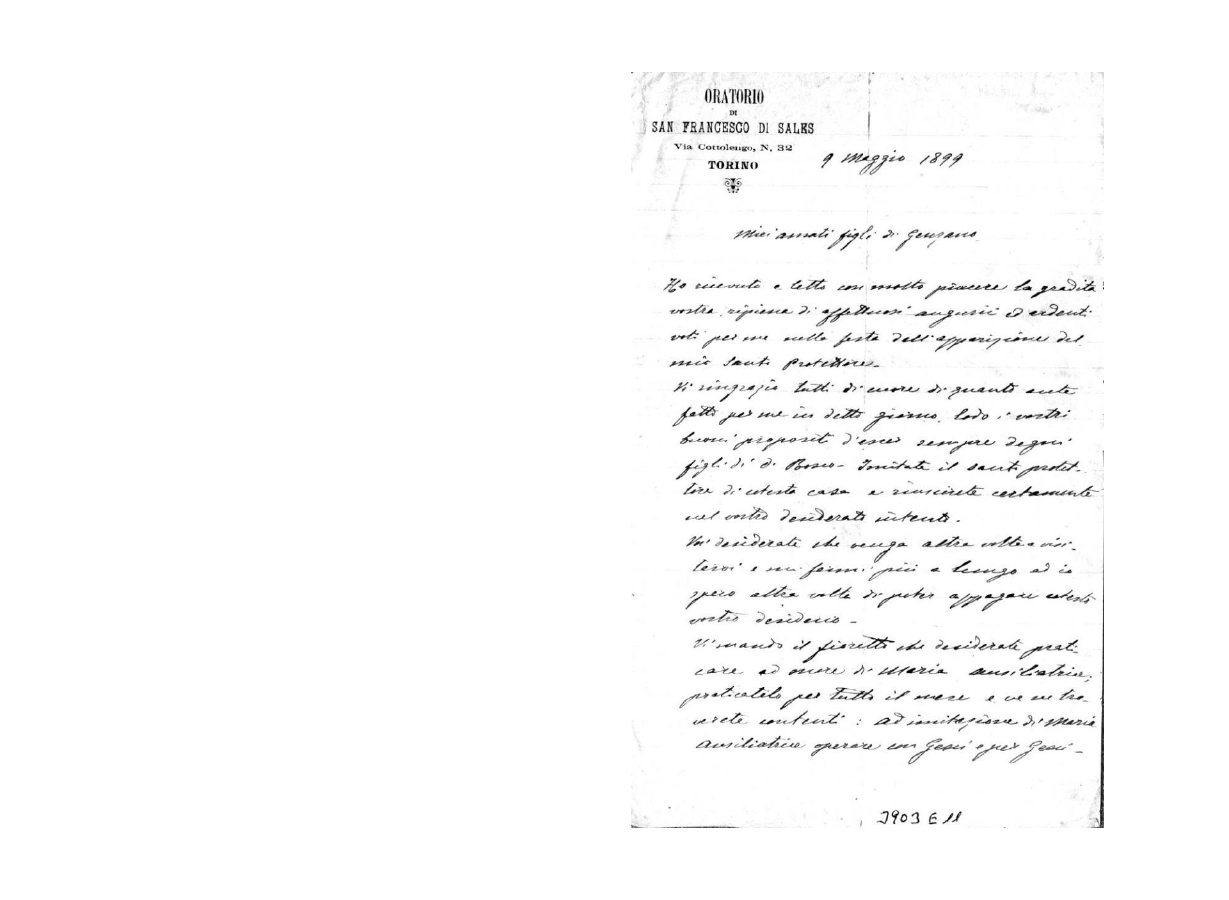 ORATORIO
DI
SAN FRANCESCO DI SALES
Via Cottolengo, N. 32
TORINO
9 Maggio 1899
Miei amati figli di Genzano
Ho ricevuto e letto con molto piacere la gradita
vostra ripiena di affettuosi augurii ed ardenti
voti per me nella festa dell'apparizione del
mio Santo Protettore -
Vi ringrazio tutti di cuore di quanto avete
fatto per me in detto giorno, lodo i vostri
buoni propositi d'esser sempre degni
figli di D. Bosco - Imitate il santo protet-
tore di cotesta casa e riuscirete certamente
nel vostro desiderato intento.
Voi desiderate che venga altra volta a visi-
tarvi e mi fermi più a lungo ed io
spero altra volta di poter appagare cotesto
vostro desiderio -
Vi mando il fioretto che desiderate prati-
care ad onore di Maria Ausiliatrice,
praticatelo per tutto il mese e ve ne tro-
verete contenti : ad imitazione di Maria
Ausiliatrice operare con Gesù e per Gesù -
3903 E 11